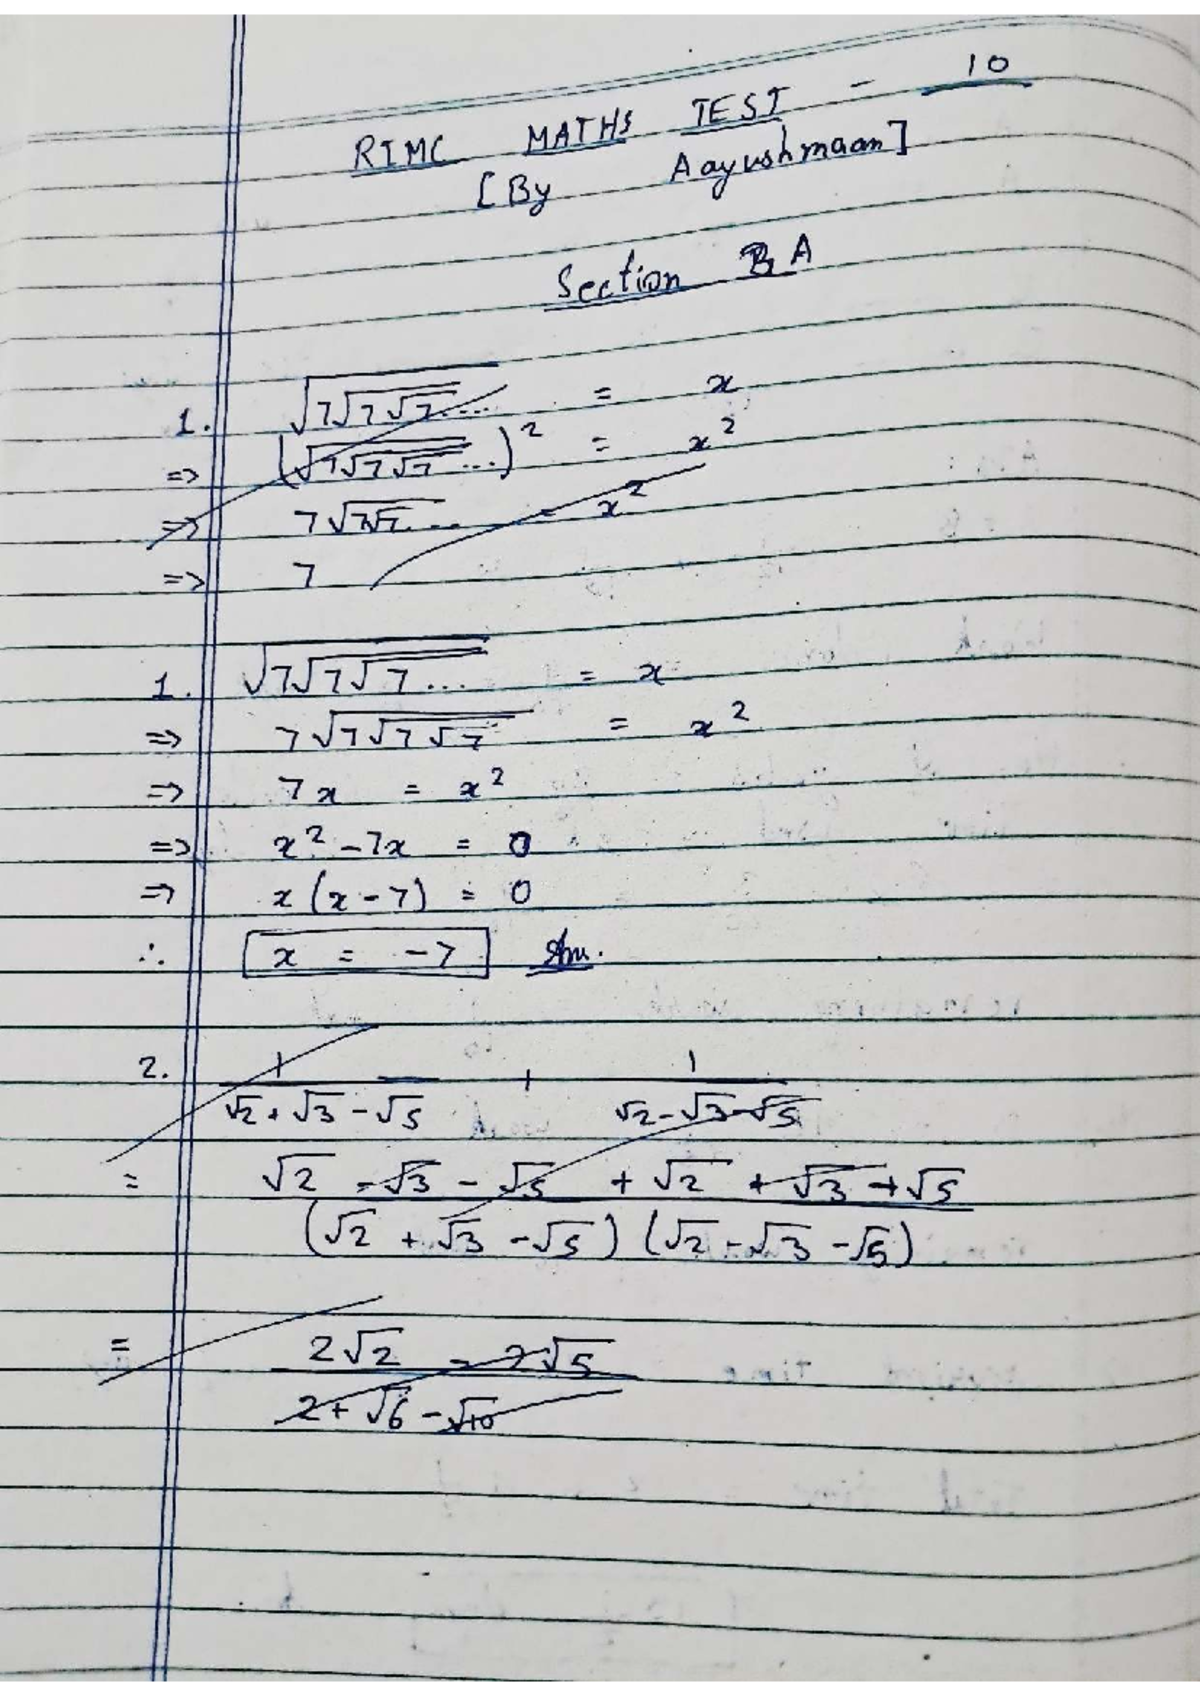 RIMC MATHS TEST - 10
[By Aayushmaan]
Section A
1. √7√7√7... = x
=> (√7√7√7...)² = x²
=> 7√7√7... = x²
=> 7
1. √7√7√7... = x
=> 7√7√7√7 = x²
=> 7x = x²
=> x² - 7x = 0
=> x(x - 7) = 0
∴ x = -7 Ans.
2. 1/(√2 + √3 - √5) + 1/(√2 - √3 - √5)
= (√2 - √3 - √5 + √2 + √3 + √5)/((√2 + √3 - √5)(√2 - √3 - √5))
= (2√2 - 2√5)/(2 + √6 - √10)